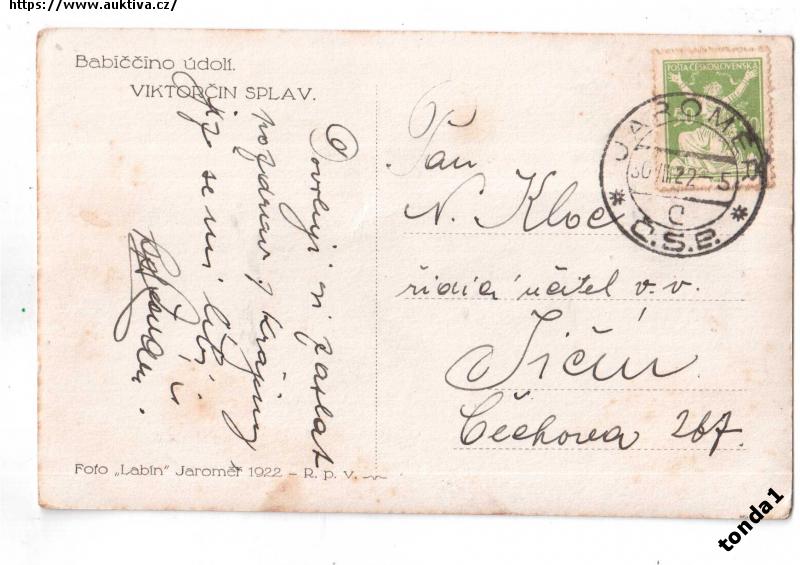 https://www.auktiva.cz/
Babiččino údolí.
VIKTORČIN SPLAV.
Dovoluji si zaslat
pozdrav z krajiny
kde se mi líbí
POŠTA ČESKOSLOVENSKÁ
50
JAROMĚŘ
30 VIII 22 - 5
C
* Č.S.P. *
Pan
N. Kloc
řídící učitel v. v.
Jičín
Čechova 267.
Foto „Labin" Jaroměř 1922 – R. p. V.
tonda1